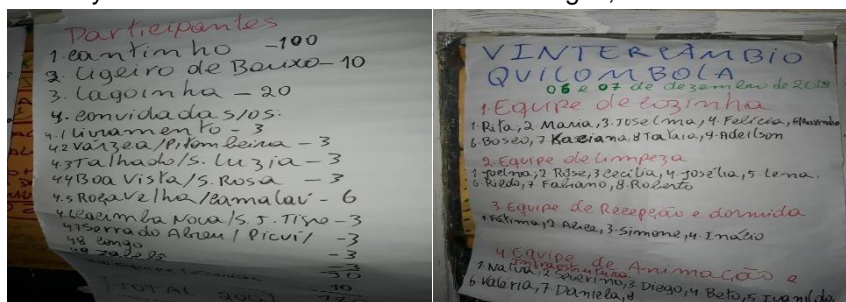 Participantes
1. Cantinho - 100
2. Ligeiro de Baixo - 10
3. Lagoinha - 20
4. Convidadas/os:
4.1 Livramento - 3
4.2 Várzea/Pitombeira - 3
4.3 Talhado/S. Luzia - 3
4.4 Boa Vista/S. Rosa - 3
4.5 Roça Velha/Camalaú - 6
4.6 Cacimba Nova/S. J. Tigre - 3
4.7 Serra do Abreu/Picuí - 3
4.8 Congo - 3
- 3
30
10
TOTAL
V INTERCÂMBIO
QUILOMBOLA
06 e 07 de dezembro de
1. Equipe de cozinha
1. Rita, 2. Maria, 3. Joselma, 4. Felícia, 5
6. Bosco, 7 8 9. Adeilson
2. Equipe de limpeza
1. Joelma, 2. Rose, 3 Cecília, 4 Josélia, 5. Lema.
6. 7 Fabiano, 8. Roberto
3. Equipe de Recepção e dormida
1 Fátima, 2. 3. Simone, 4. Inácio
4 Equipe de Animação e
infraestrutura
1. 2 Severino, 3. Diego, 4 Beto, 5
6 Valeria, 7. Daniela, 8